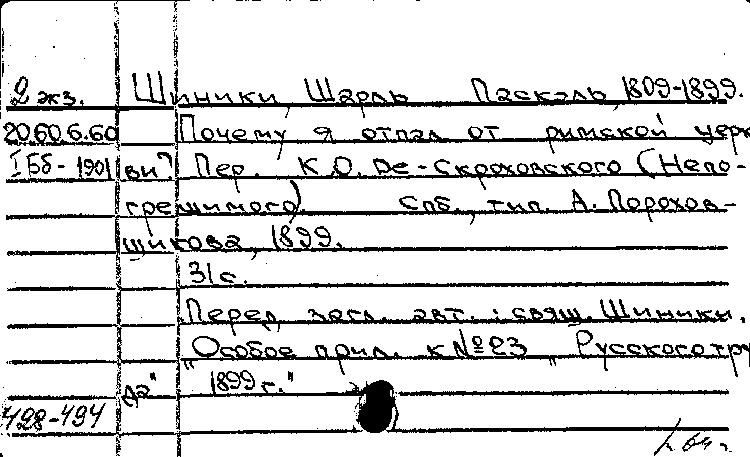 2 экз. Шиники, Шарль Паскаль, 1809-1899.
20.60.6.60 Почему я отпал от римской церк
I Бб - 1901 ви? Пер. К.О. Де-Скроховского (Непо-
грешимого). Спб., тип. А. Порохов-
щикова, 1899.
31 с.
Перед загл. авт.: свящ. Шиники.
„Особое прил. к № 23 „Русского тру
да" 1899 г."
428-494